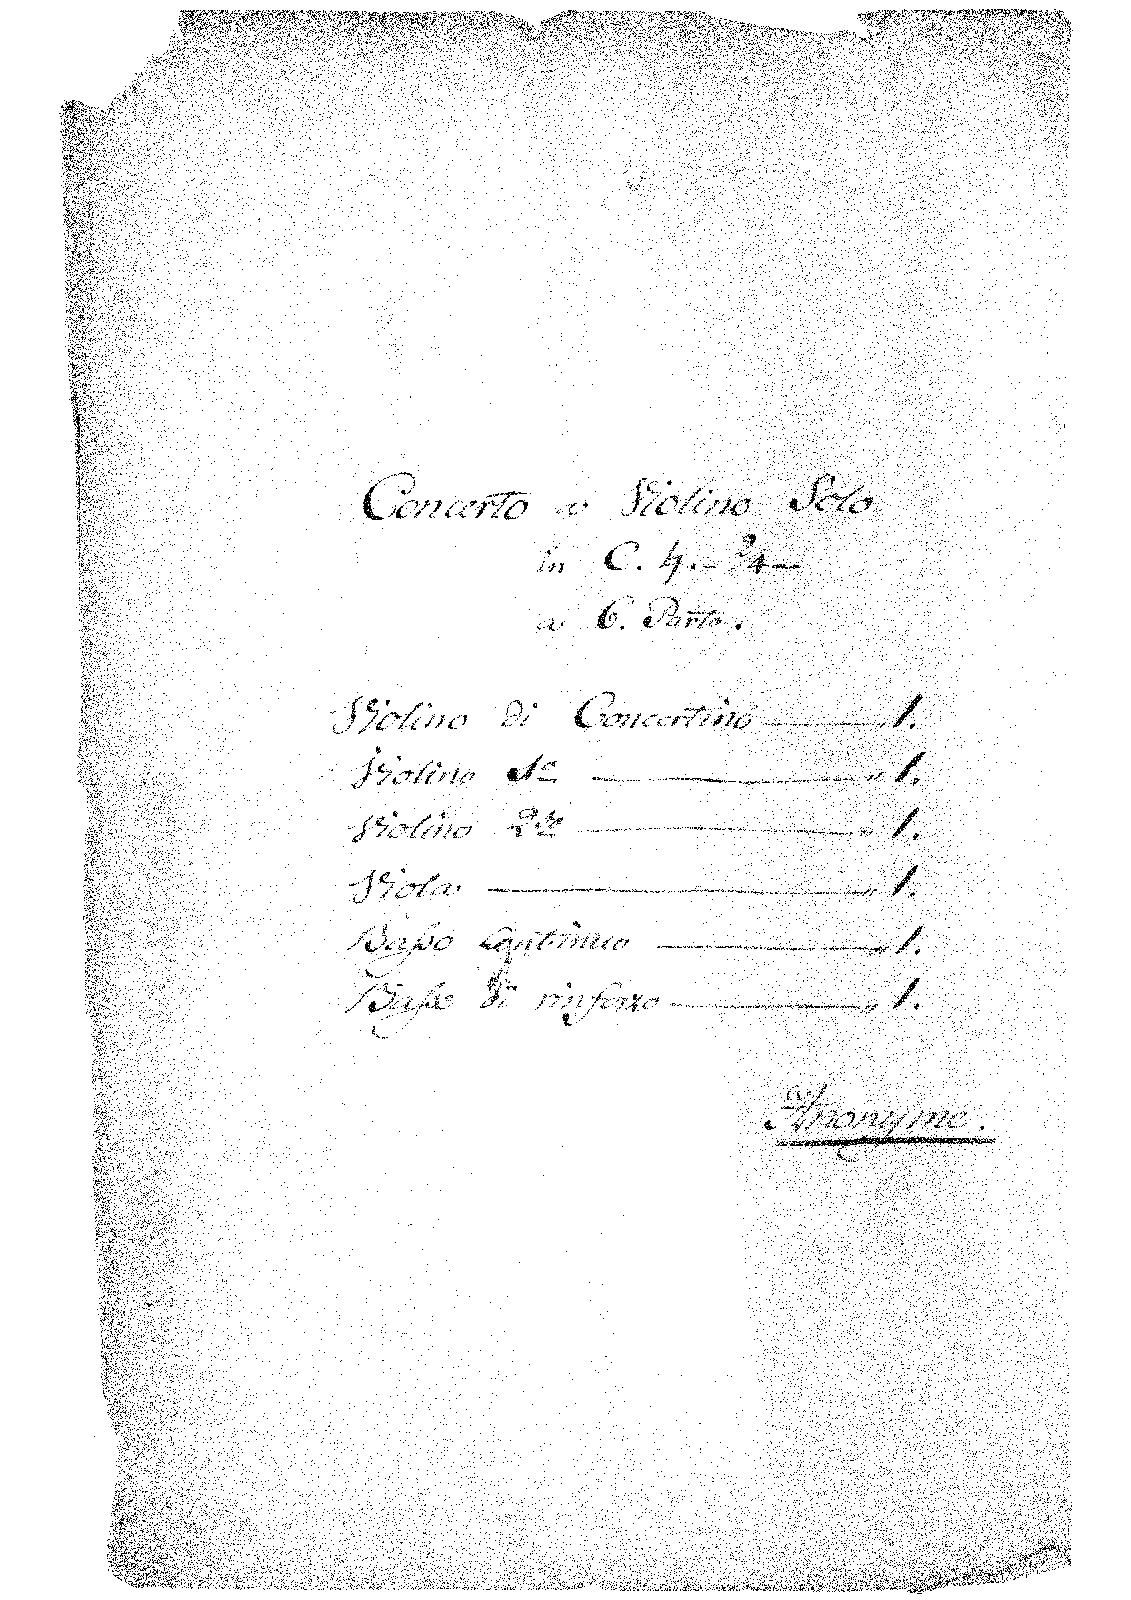 Concerto a Violino Solo
in C. ♮. – 3/4 –
a 6. Part.
Violino di Concertino ——— " 1.
Violino 1o ——— " 1.
Violino 2do ——— " 1.
Viola ——— " 1.
Baſso Continuo ——— " 1.
Baſse di rinforzo ——— " 1.
a/
Anonyme.